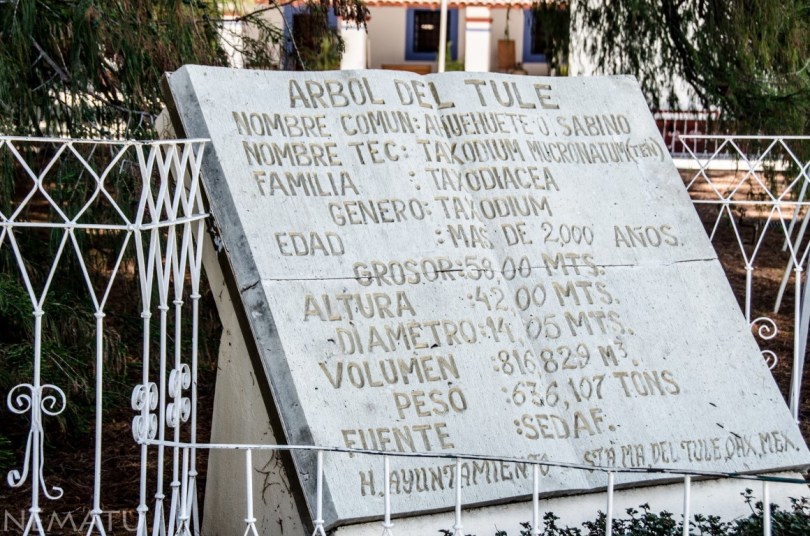 ARBOL DEL TULE
NOMBRE COMUN: AHUEHUETE O. SABINO
NOMBRE TEC: TAXODIUM MUCRONATUM (TEÑ)
FAMILIA : TAXODIACEA
GENERO: TAXODIUM
EDAD : MAS DE 2,000 AÑOS.
GROSOR: 58.00 MTS.
ALTURA : 42.00 MTS.
DIAMETRO: 14.05 MTS.
VOLUMEN : 816,829 M³.
PESO : 636,107 TONS
FUENTE : SEDAF.
H. AYUNTAMIENTO STA MA DEL TULE, OAX, MEX.
NEMATU